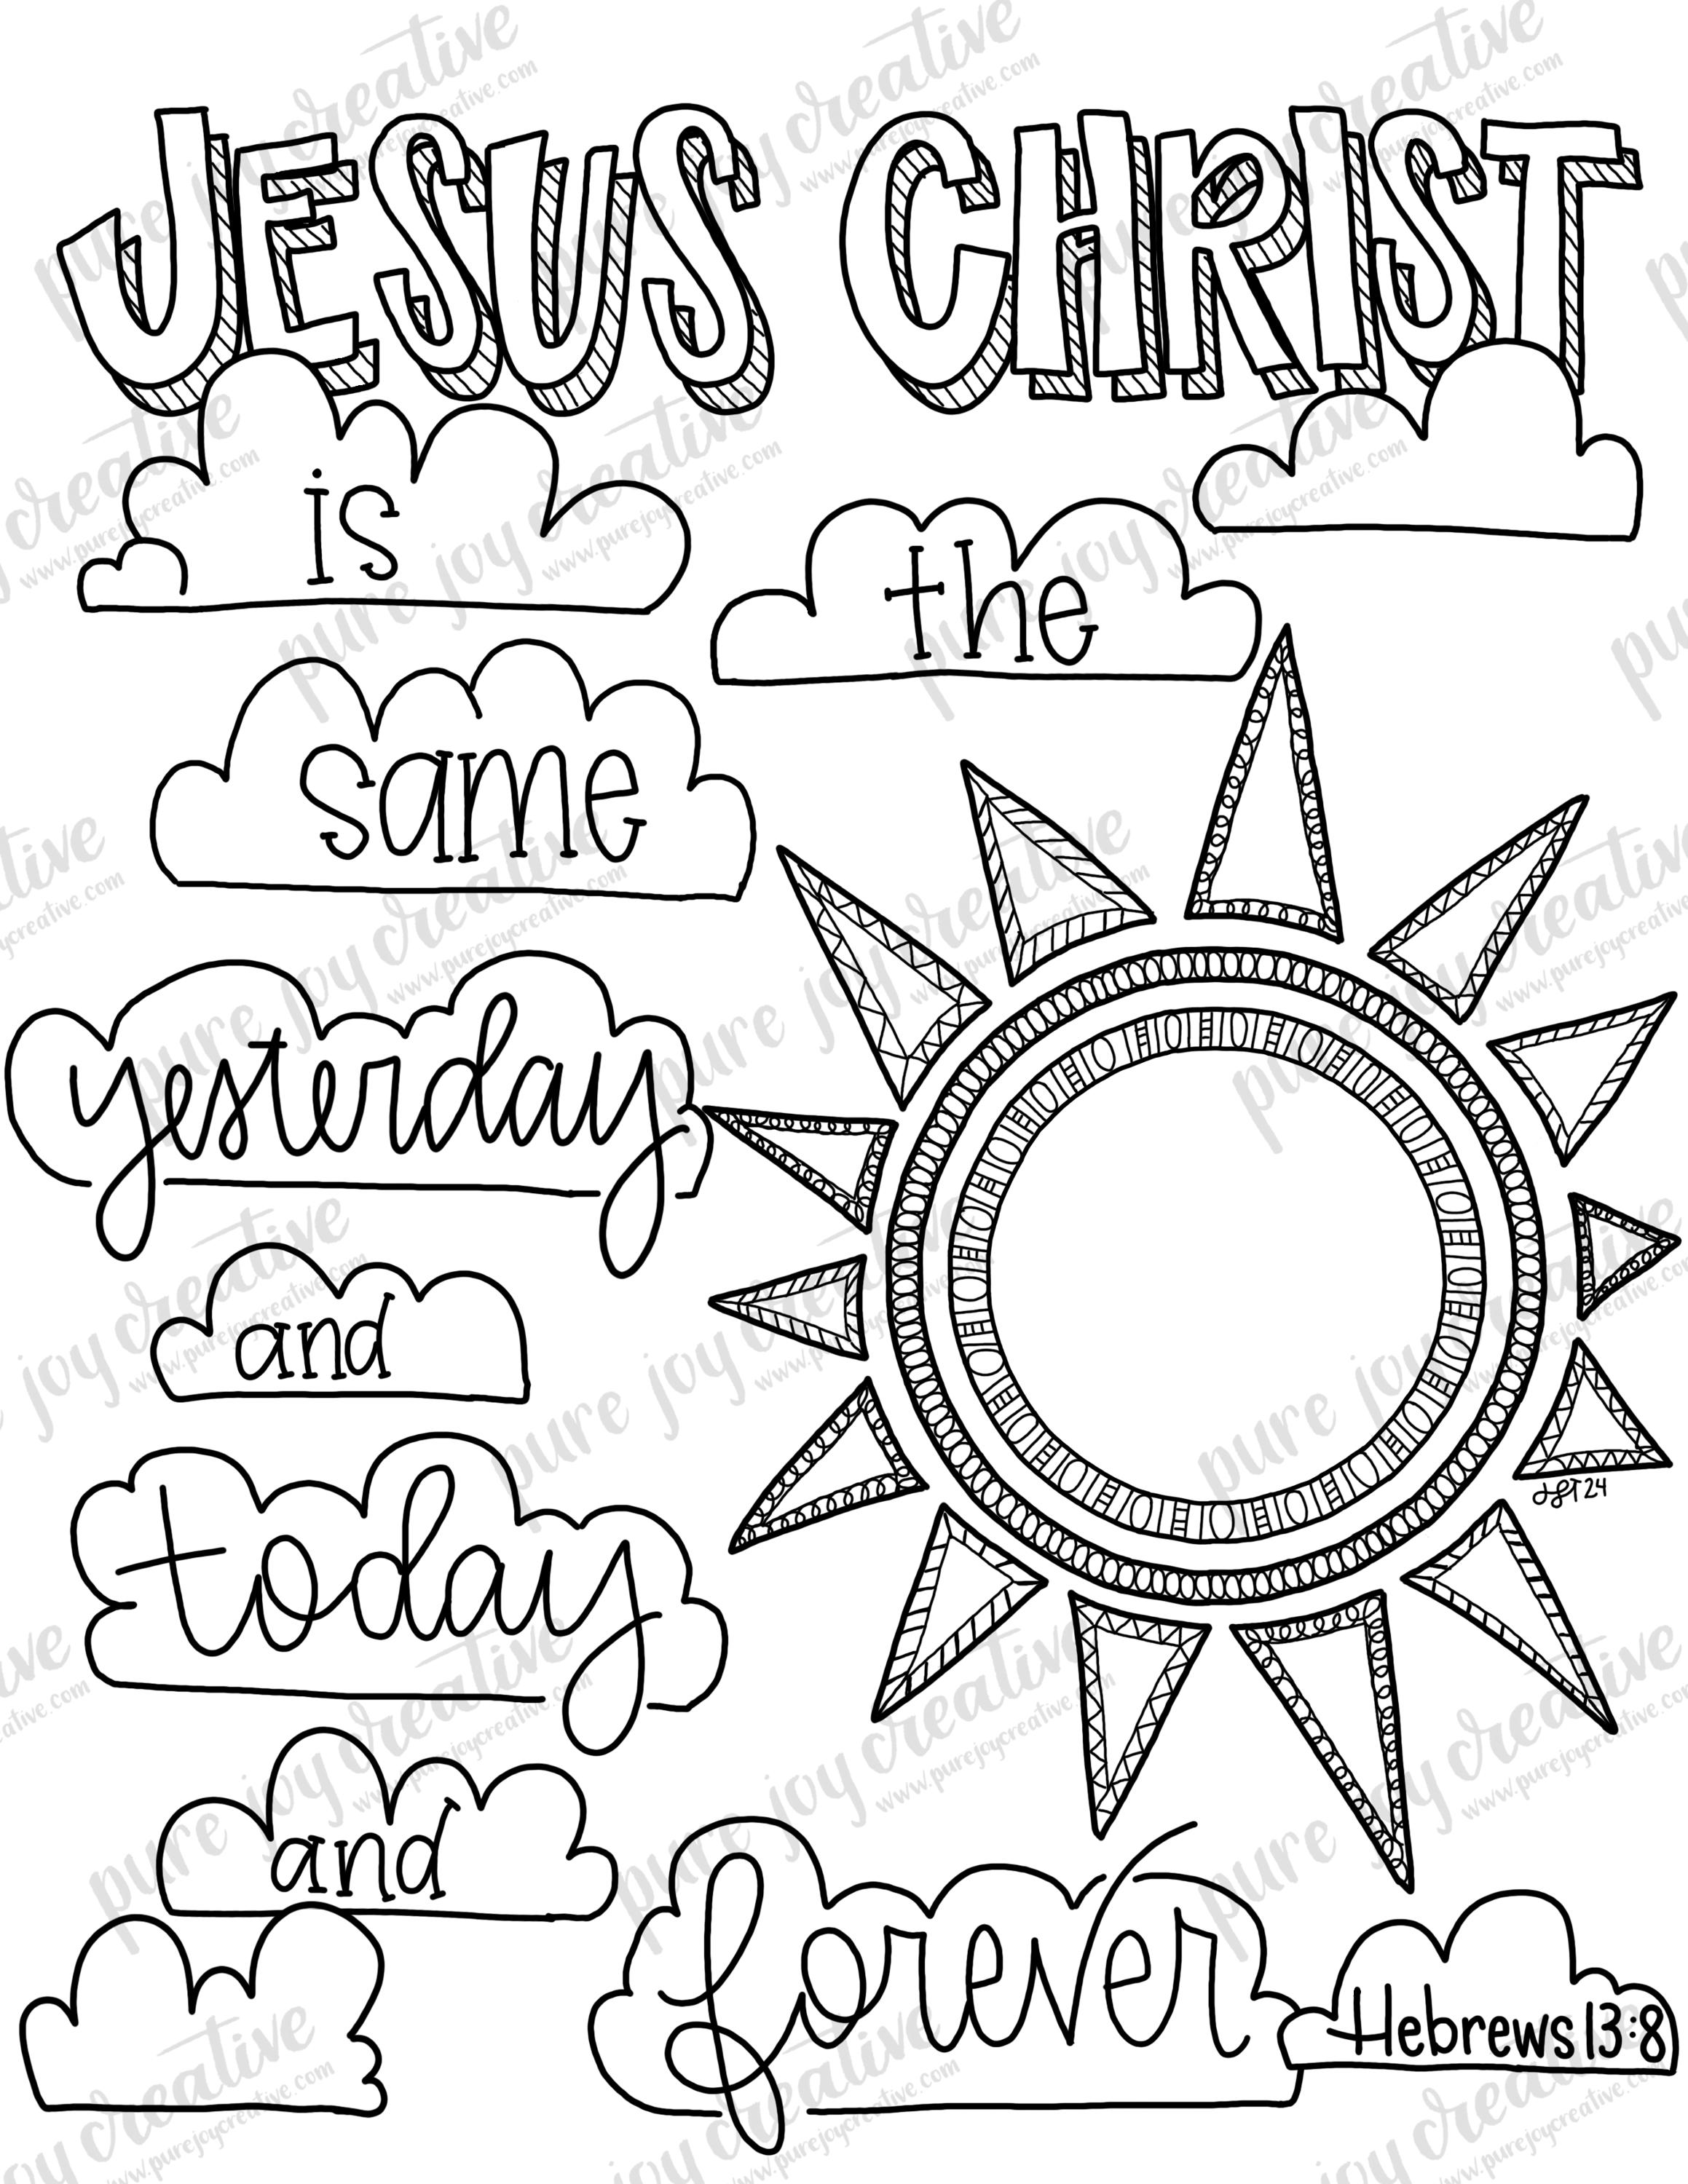 JESUS CHRIST
is
the
same
yesterday
and
today
and
forever
Hebrews 13:8
JLT24
pure joy creative
www.purejoycreative.com